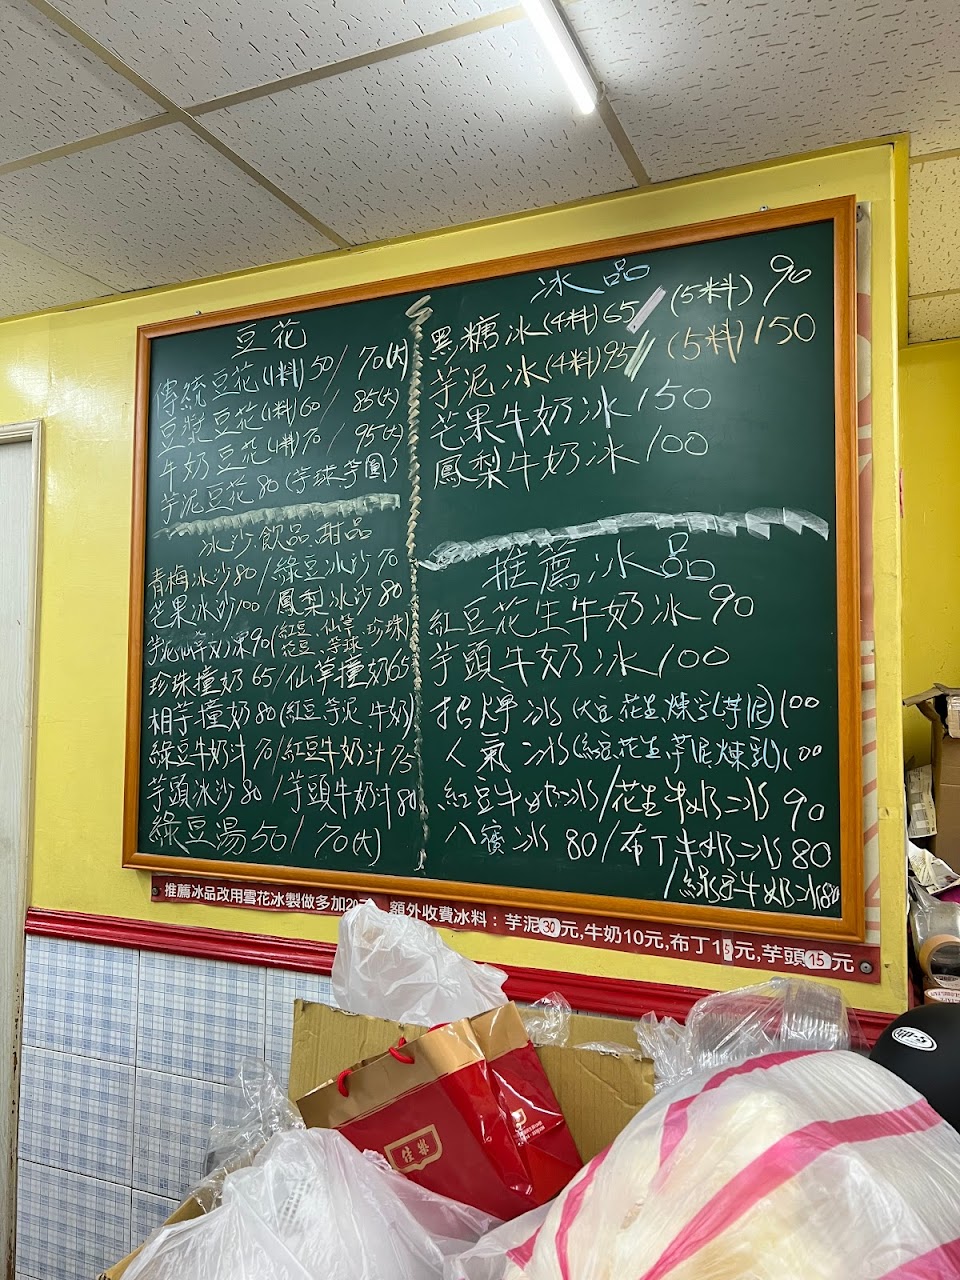 豆花
傳統豆花(1料)50/70(大)
豆漿豆花(1料)60/85(大)
牛奶豆花(1料)70/95(大)
芋泥豆花80(芋球.芋圓)
冰沙.飲品.甜品
青梅冰沙80/綠豆冰沙70
芒果冰沙100/鳳梨冰沙80
芋泥仙草奶凍90(紅豆、仙草、珍珠
花豆、芋球)
珍珠撞奶65/仙草撞奶65
相芋撞奶80(紅豆芋泥牛奶)
綠豆牛奶汁70/紅豆牛奶汁75
芋頭冰沙80/芋頭牛奶汁80
綠豆湯50/70(大)
冰品
黑糖冰(4料)65/(5料)90
芋泥冰(4料)95/(5料)150
芒果牛奶冰150
鳳梨牛奶冰100
推薦冰品
紅豆花生牛奶冰90
芋頭牛奶冰100
招牌冰(大豆花生煉乳芋泥)100
人氣冰(紅豆花生芋泥煉乳)100
紅豆牛奶冰/花生牛奶冰90
八寶冰80/布丁牛奶冰80
/綠豆牛奶冰80
推薦冰品改用雪花冰製做多加20元 額外收費冰料:芋泥30元,牛奶10元,布丁15元,芋頭15元
佳樂